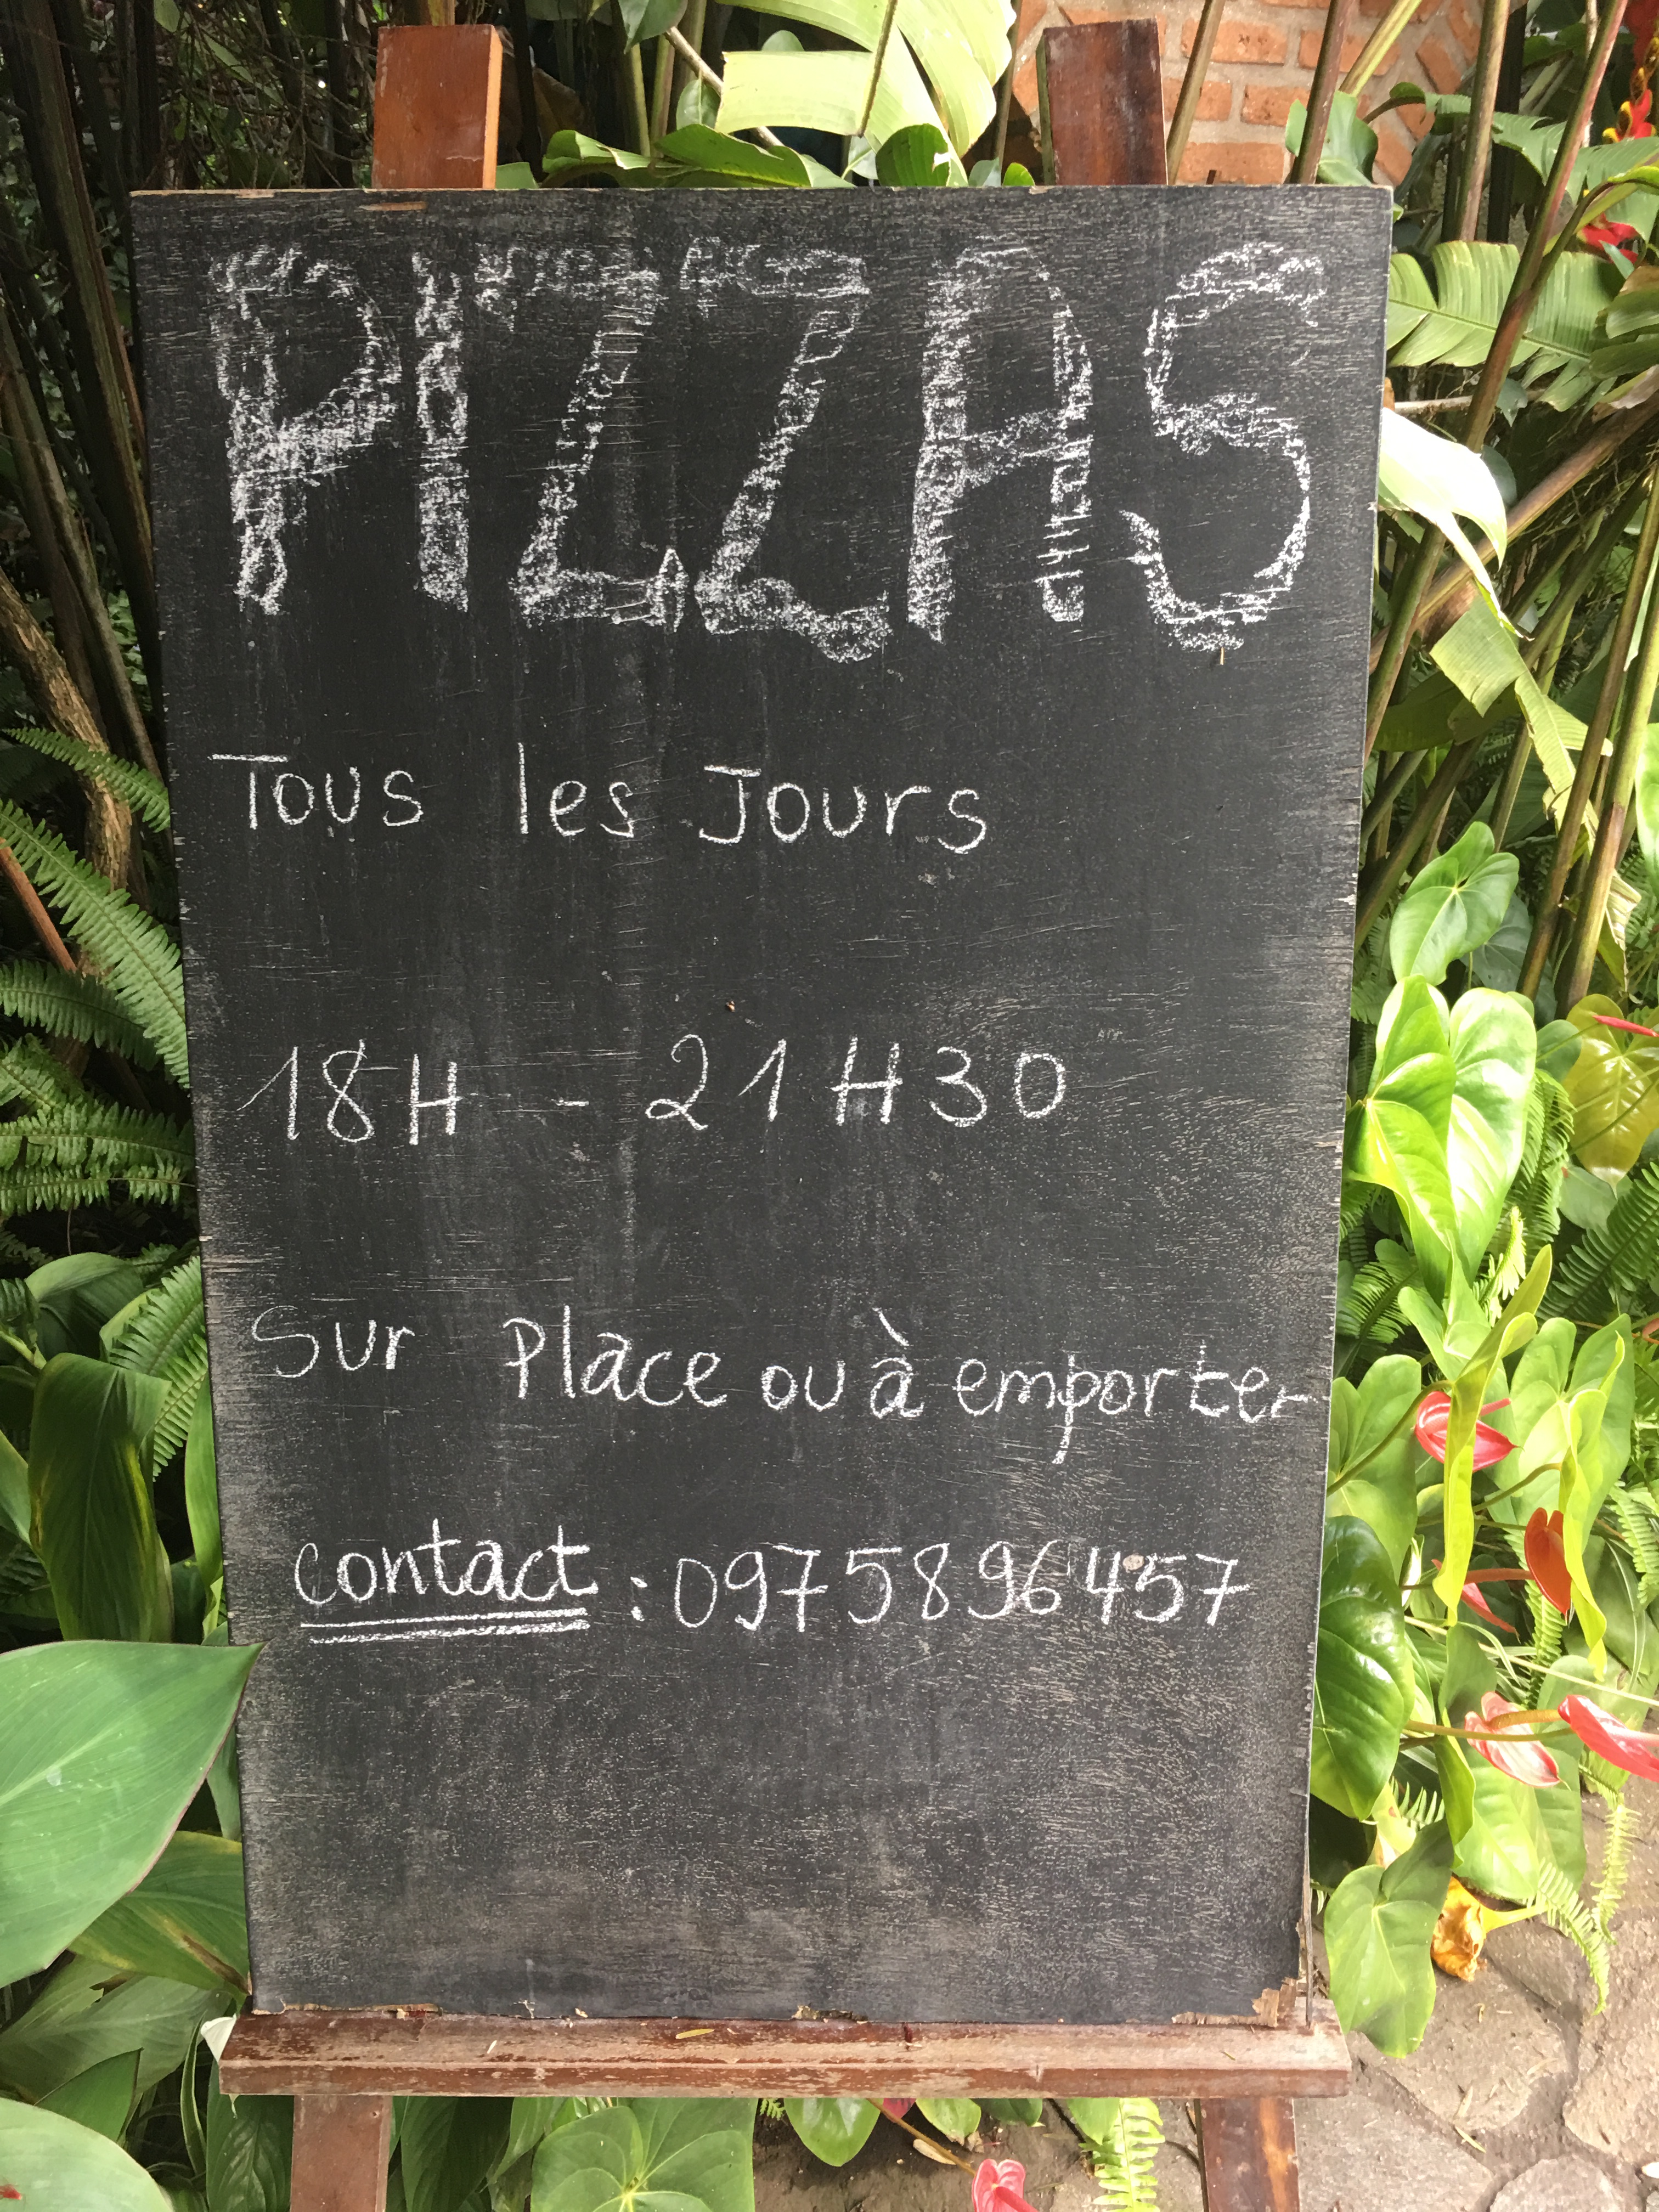 PIZZAS
Tous les Jours
18H - 21H30
Sur Place ou à emporter
Contact : 0975896457